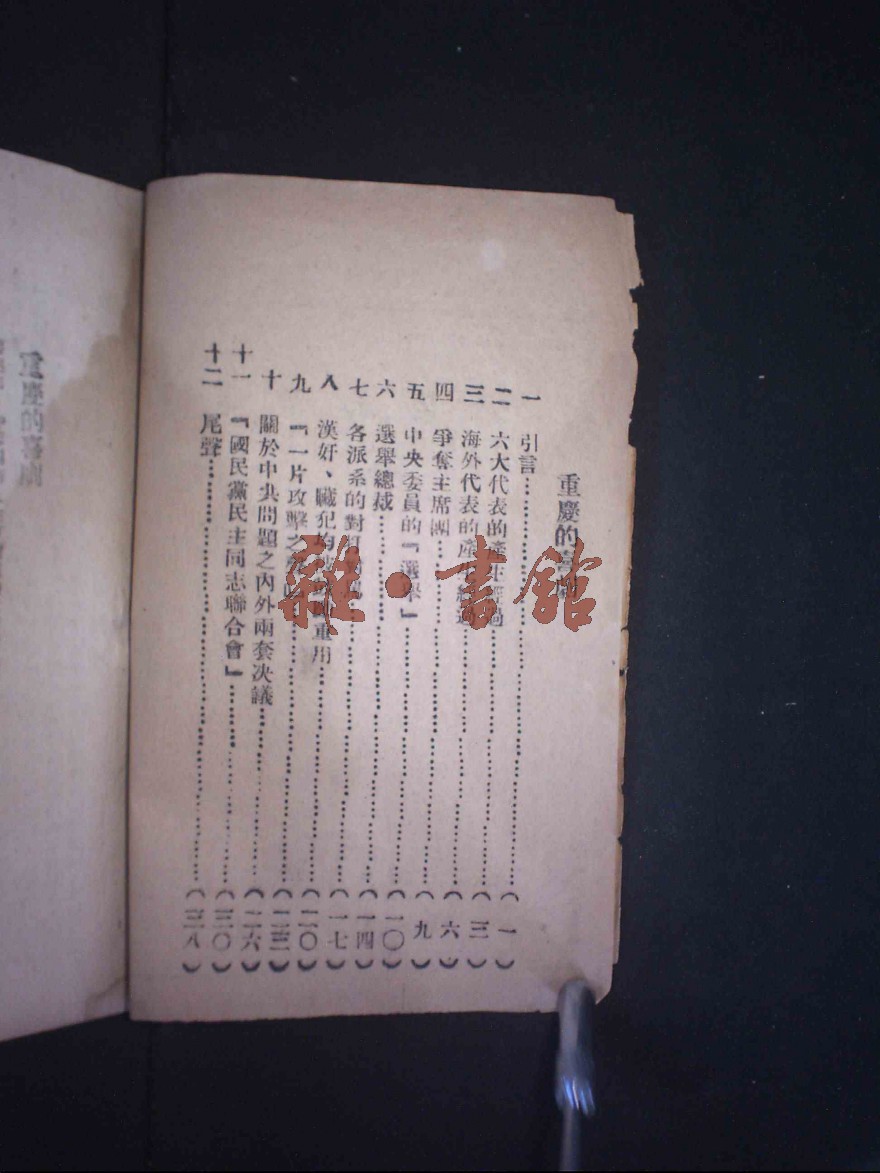 重慶的喜劇
一 引言……（一）
二 六大代表的產生經過……（三）
三 海外代表的產生經過……（六）
四 爭奪主席團……（九）
五 中央委員的『選舉』……（一〇）
六 選舉總裁……（一四）
七 各派系的對……（一七）
八 漢奸、贓犯均 重用……（二〇）
九 『一片攻擊之……（二三）
十 關於中共問題之內外兩套決議……（二六）
十一 『國民黨民主同志聯合會』……（三〇）
十二 尾聲……（三八）
重慶的喜劇
雜·書館